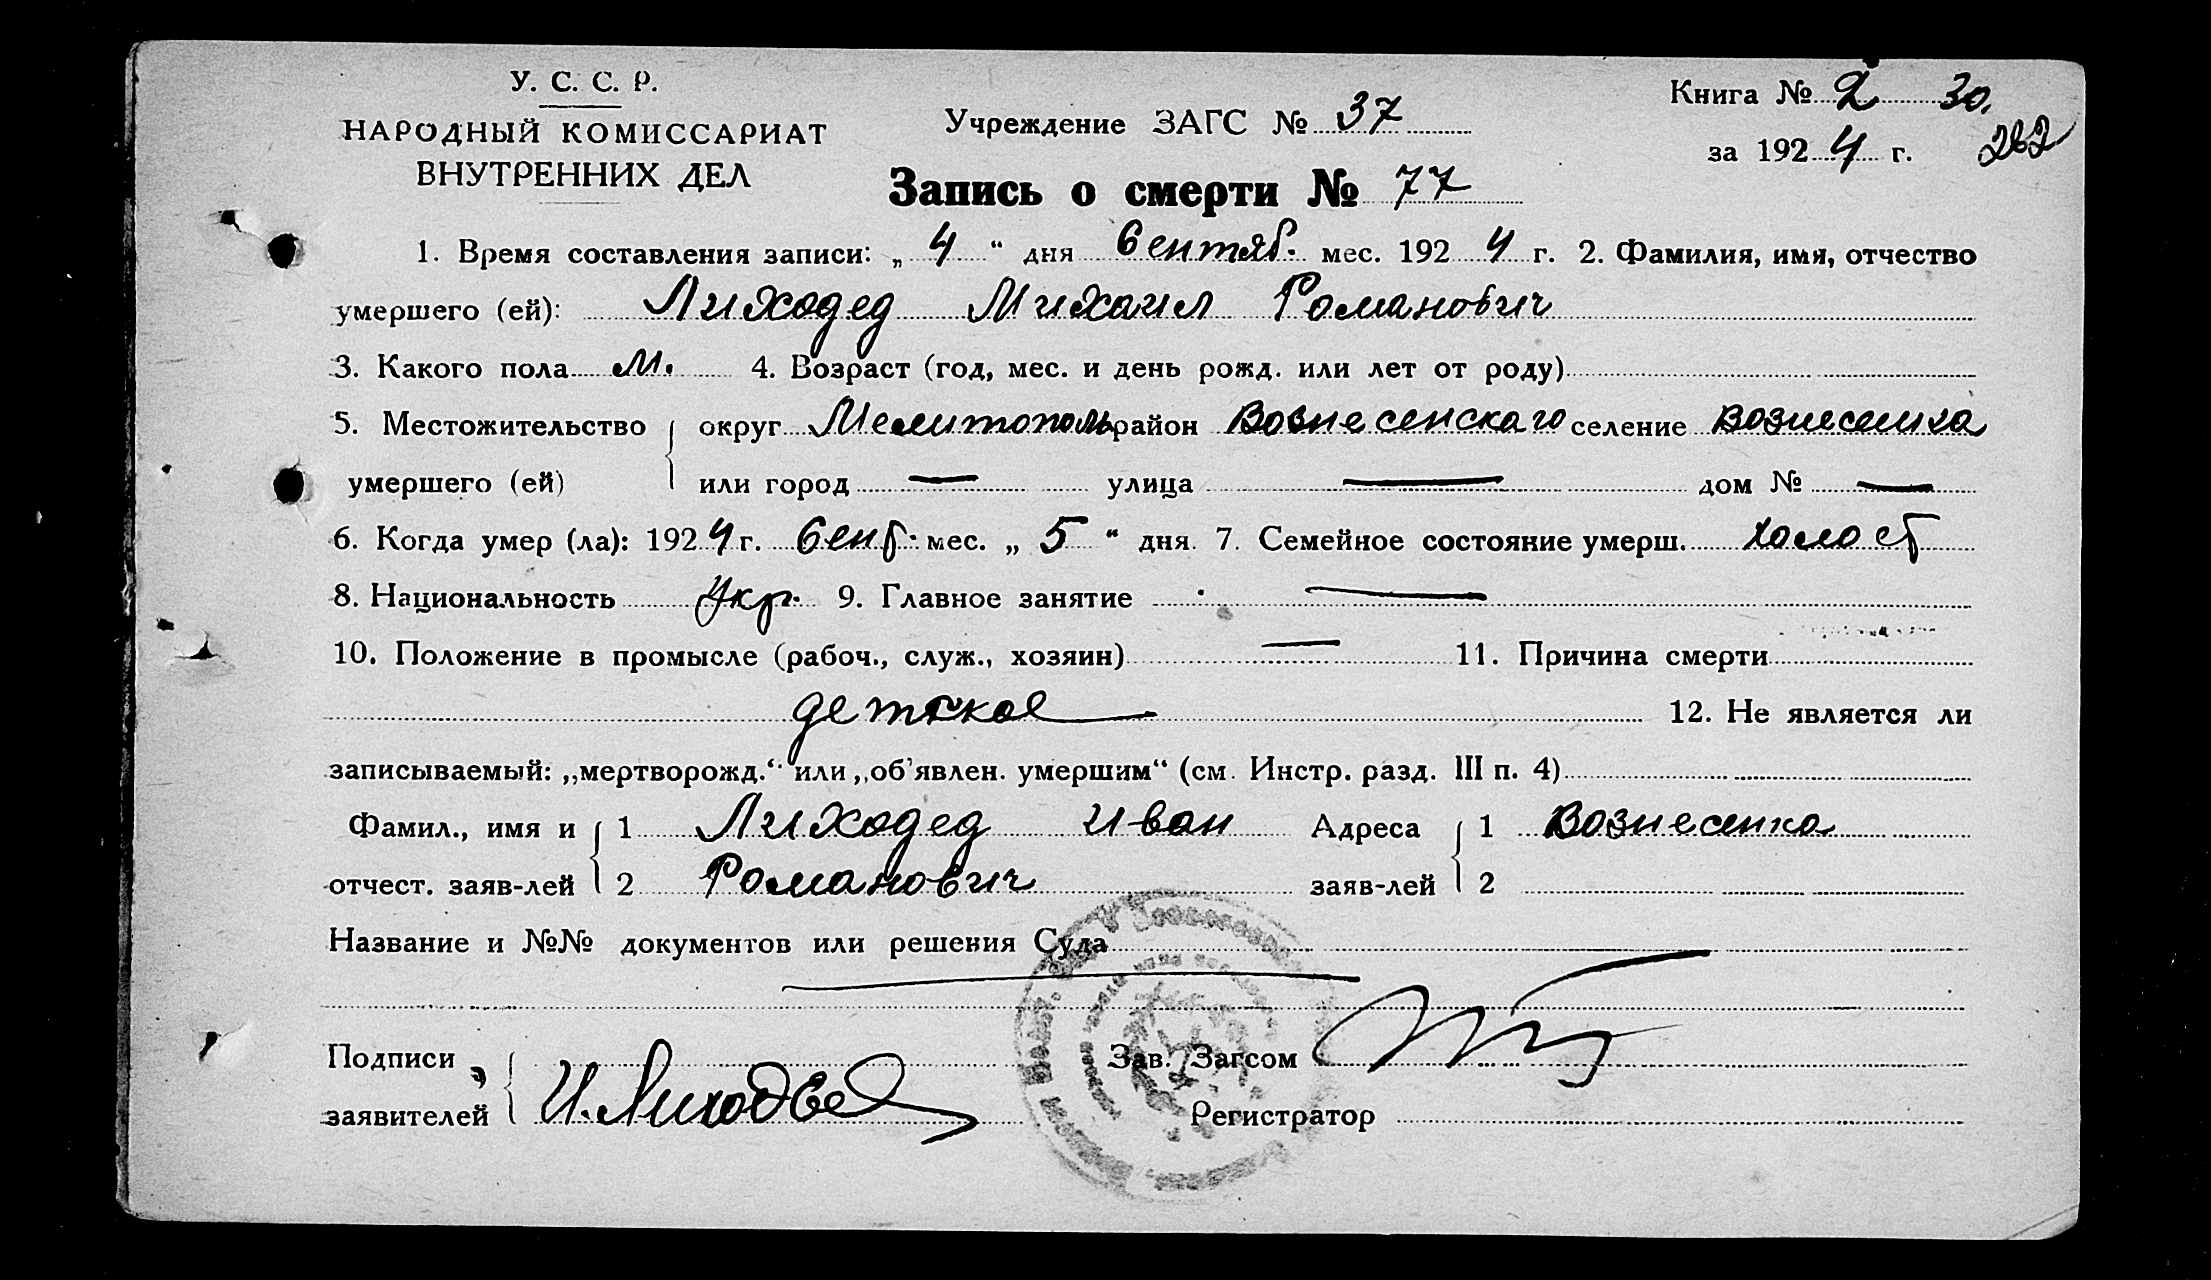 У. С. С. Р.
НАРОДНЫЙ КОМИССАРИАТ
ВНУТРЕННИХ ДЕЛ
Учреждение ЗАГС № 37
Книга № 2 30.
за 1924 г. 262
Запись о смерти № 77
1. Время составления записи: „ 4 “ дня Сентяб. мес. 1924 г. 2. Фамилия, имя, отчество
умершего (ей): Лиходед Михаил Романович
3. Какого пола м. 4. Возраст (год, мес. и день рожд. или лет от роду)
5. Местожительство округ Мелитополь район Вознесенского селение Вознесенка
умершего (ей) или город — улица — дом № —
6. Когда умер (ла): 1924 г. Сент. мес. „ 5 “ дня. 7. Семейное состояние умерш. холост
8. Национальность Укр. 9. Главное занятие —
10. Положение в промысле (рабоч., служ., хозяин) — 11. Причина смерти
детское 12. Не является ли
записываемый: „мертворожд.“ или „об'явлен. умершим“ (см. Инстр. разд. III п. 4)
Фамил., имя и 1 Лиходед Иван Адреса 1 Вознесенка
отчест. заяв-лей 2 Романович заяв-лей 2
Название и №№ документов или решения Суда
Подписи Зав. Загсом
заявителей И. Лиходед Регистратор